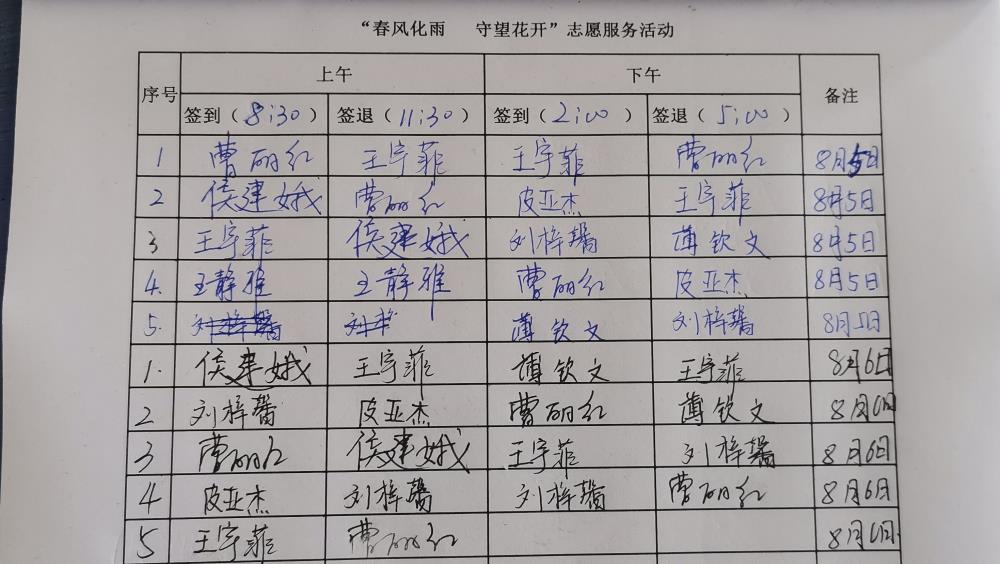 “春风化雨 守望花开”志愿服务活动
序号 上午 下午 备注
签到（8:30） 签退（11:30） 签到（2:00） 签退（5:00）
1 曹丽红 王宇菲 王宇菲 曹丽红 8月5日
2 侯建娥 曹丽红 皮亚杰 王宇菲 8月5日
3 王宇菲 侯建娥 刘梓馨 薄钦文 8月5日
4. 王静雅 王静雅 曹丽红 皮亚杰 8月5日
5. 刘梓馨 刘 薄钦文 刘梓馨 8月5日
1. 侯建娥 王宇菲 薄钦文 王宇菲 8月6日
2 刘梓馨 皮亚杰 曹丽红 薄钦文 8月6日
3 曹丽红 侯建娥 王宇菲 刘梓馨 8月6日
4 皮亚杰 刘梓馨 刘梓馨 曹丽红 8月6日
5 王宇菲 曹丽红 8月6日